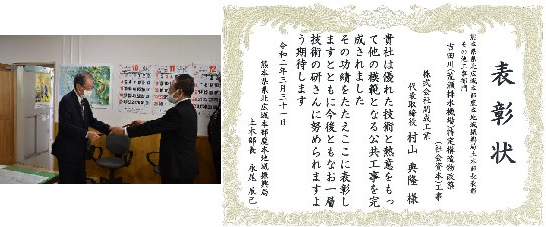 10 11 12
表彰状
熊本県県北広域本部鹿本地域振興局土木部長表彰
その他工事部門
吉田川(荒瀬排水機場)特定構造物改築
(社会資本)工事
株式会社開成工業
代表取締役 村山 典隆 様
貴社は優れた技術と熱意をもっ
て他の模範となる公共工事を完
成されました
その功績をたたえここに表彰し
ますとともに今後ともなお一層
技術の研さんに努められますよ
う期待します
令和二年
熊本県県北広域本部鹿本地域振興局
土木部長 永尾 辰己